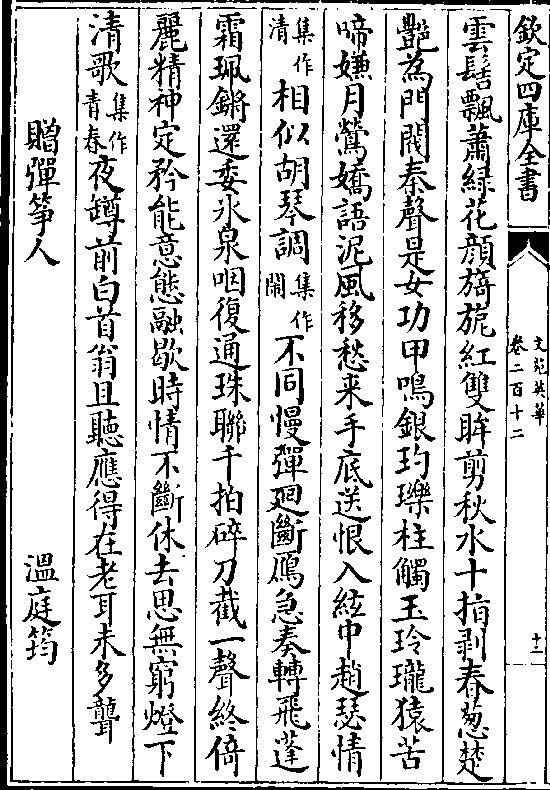 欽定四庫全書
文苑英華
卷二百十二
十三
雲髻飄蕭綠花顔旖旎紅雙眸剪秋水十指剥春葱楚
艷為門閥秦聲是女功甲鳴銀玓瓅柱觸玉玲瓏猿苦
啼嫌月鶯嬌語泥風移愁来手底送恨入絃中趙瑟情
集作清相似胡琴調集作鬧不同慢彈迴斷鴈急奏轉飛蓬
霜珮鏘還委氷泉咽復通珠聯千拍碎刀截一聲終倚
麗精神定矜能意態融歇時情不斷休去思無窮燈下
清歌集作青春夜罇前白首翁且聽應得在老耳未多聾
贈彈筝人 溫庭筠